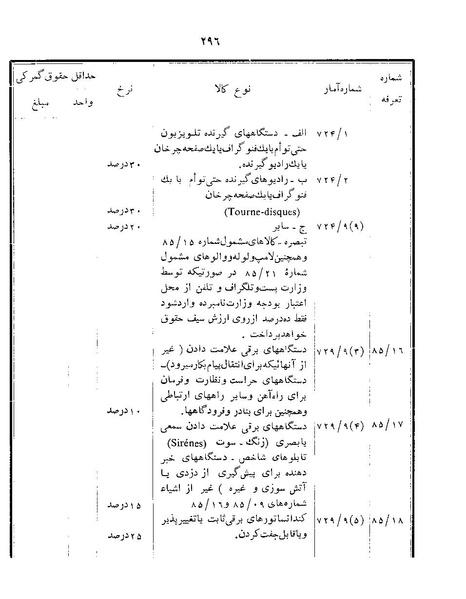 ۲۹۶
شماره تعرفه شماره آمار نوع کالا نرخ حداقل حقوق گمرکی
واحد مبلغ
۷۲۴/۱ الف ـ دستگاههای گیرنده تلویزیون
حتی توأم بایك فنوگراف یا یك صفحه چرخان
یا یك رادیو گیرنده. ۳۰درصد
۷۲۴/۲ ب ـ رادیوهای گیرنده حتی توأم با یك
فنوگراف یا یك صفحه چرخان
(Tourne-disques) ۳۰درصد
۷۲۴/۹(۹) ج ـ سایر ۲۰درصد
تبصره ـ کالاهای مشمول شماره ۸۵/۱۵
و همچنین لامپ ولوله ووالوهای مشمول
شمارۀ ۸۵/۲۱ در صورتیکه توسط
وزارت پست و تلگراف و تلفن از محل
اعتبار بودجه وزارت نامبرده وارد شود
فقط ده درصد از روی ارزش سیف حقوق
خواهد پرداخت .
۸۵/۱۶ ۷۲۹/۹(۳) دستگاههای برقی علامت دادن ( غیر
از آنهائیکه برای انتقال پیام بکار میرود)ـ
دستگاههای حراست ونظارت وفرمان
برای راه آهن وسایر راههای ارتباطی
وهمچنین برای بنادر و فرودگاهها. ۱۰درصد
۸۵/۱۷ ۷۲۹/۹(۴) دستگاههای برقی علامت دادن سمعی
یا بصری (زنگ ـ سوت (Sirénes)
تابلوهای شاخص ـ دستگاههای خبر
دهنده برای پیش گیری از دزدی یا
آتش سوزی و غیره ) غیر از اشیاء
شماره های ۸۵/۰۹ و ۸۵/۱۶ ۱۵درصد
۸۵/۱۸ ۷۲۹/۹(۵) کندانساتورهای برقی ثابت یا تغییر پذیر
ویا قابل جفت کردن. ۲۵درصد